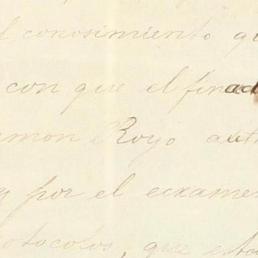 l conosimiento qu
con que el finad
amon Royo aut
y por el examen
otocolos, que esta